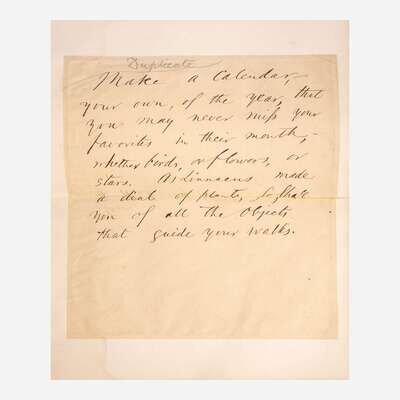 Duplicate
Make a Calendar,
your own, of the year, that
you may never miss your
favorites in their month,—
whether birds, or flowers, or
stars. As Linnaeus made
a dial of plants, so shall
you of all the objects
that guide your walks.